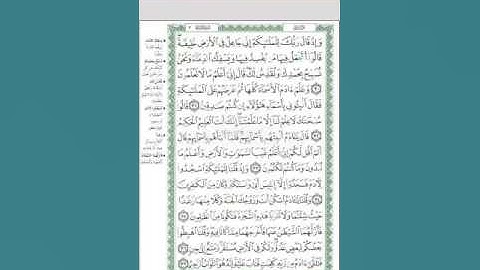 وَإِذْ قَالَ رَبُّكَ لِلْمَلَٰٓئِكَةِ إِنِّي جَاعِلٌ فِي ٱلْأَرْضِ خَلِيفَةً
قَالُوٓا۟ أَتَجْعَلُ فِيهَا مَن يُفْسِدُ فِيهَا وَيَسْفِكُ ٱلدِّمَآءَ وَنَحْنُ
نُسَبِّحُ بِحَمْدِكَ وَنُقَدِّسُ لَكَ قَالَ إِنِّيٓ أَعْلَمُ مَا لَا تَعْلَمُونَ
٣٠ وَعَلَّمَ ءَادَمَ ٱلْأَسْمَآءَ كُلَّهَا ثُمَّ عَرَضَهُمْ عَلَى ٱلْمَلَٰٓئِكَةِ
فَقَالَ أَنۢبِـُٔونِي بِأَسْمَآءِ هَٰٓؤُلَآءِ إِن كُنتُمْ صَٰدِقِينَ ٣١ قَالُوا۟
سُبْحَٰنَكَ لَا عِلْمَ لَنَآ إِلَّا مَا عَلَّمْتَنَآ إِنَّكَ أَنتَ ٱلْعَلِيمُ ٱلْحَكِيمُ
٣٢ قَالَ يَٰٓـَٔادَمُ أَنۢبِئْهُم بِأَسْمَآئِهِمْ فَلَمَّآ أَنۢبَأَهُم بِأَسْمَآئِهِمْ قَالَ
أَلَمْ أَقُل لَّكُمْ إِنِّيٓ أَعْلَمُ غَيْبَ ٱلسَّمَٰوَٰتِ وَٱلْأَرْضِ وَأَعْلَمُ مَا
تُبْدُونَ وَمَا كُنتُمْ تَكْتُمُونَ ٣٣ وَإِذْ قُلْنَا لِلْمَلَٰٓئِكَةِ ٱسْجُدُوا۟
لِـَٔادَمَ فَسَجَدُوٓا۟ إِلَّآ إِبْلِيسَ أَبَىٰ وَٱسْتَكْبَرَ وَكَانَ مِنَ ٱلْكَٰفِرِينَ
٣٤ وَقُلْنَا يَٰٓـَٔادَمُ ٱسْكُنْ أَنتَ وَزَوْجُكَ ٱلْجَنَّةَ وَكُلَا مِنْهَا رَغَدًا
حَيْثُ شِئْتُمَا وَلَا تَقْرَبَا هَٰذِهِ ٱلشَّجَرَةَ فَتَكُونَا مِنَ ٱلظَّٰلِمِينَ ٣٥
فَأَزَلَّهُمَا ٱلشَّيْطَٰنُ عَنْهَا فَأَخْرَجَهُمَا مِمَّا كَانَا فِيهِ وَقُلْنَا ٱهْبِطُوا۟
بَعْضُكُمْ لِبَعْضٍ عَدُوٌّ وَلَكُمْ فِي ٱلْأَرْضِ مُسْتَقَرٌّ وَمَتَٰعٌ إِلَىٰ حِينٍ ٣٦
فَتَلَقَّىٰٓ ءَادَمُ مِن رَّبِّهِۦ كَلِمَٰتٍ فَتَابَ عَلَيْهِ إِنَّهُۥ هُوَ ٱلتَّوَّابُ ٱلرَّحِيمُ ٣٧